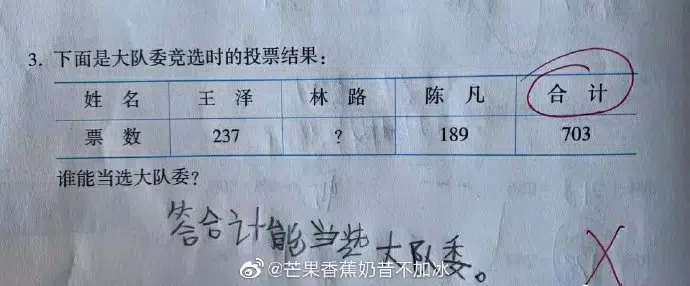 3. 下面是大队委竞选时的投票结果：
姓 名 王 泽 林 路 陈 凡 合 计
票 数 237 ? 189 703
谁能当选大队委？
答合计能当选大队委。
@芒果香蕉奶昔不加冰